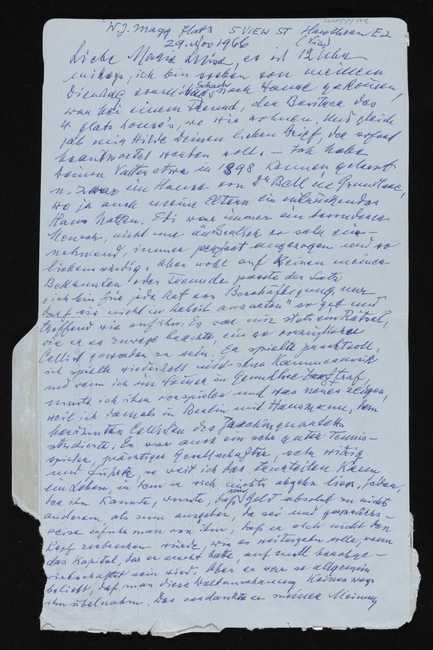 W.J. Magg Flats 5 VIEW ST Hawthorn E2
29. Nov 1966 (Vic)
Liebe Maria Luise, es ist 12 Uhr
mittags, ich bin soeben von meinem
Dienstag nach Hause gekommen,
war bei einem Freund, der Besitzer des
4 flats house's, wo wir wohnen. Und gleich
gab mir Hilde Deinen lieben Brief, der sofort
beantwortet werden soll. – Ich habe
Deinen Vater etwa in 1898 kennen gelernt
u. zwar im Hause von Dr Bell in Grundlsee,
wo ja auch meine Eltern ein entzückendes
Haus hatten. Er war immer ein besonderer
Mensch, nicht nur äusserlich so sehr ein-
nehmend, immer perfect angezogen und so
liebenswürdig, aber wohl auf keinen meiner
Bekannten oder Freunde passte der Satz
"ich bin für jede Art von Beschäftigung, nur
darf sie nicht in Arbeit ausarten" so gut und
treffend wie auf ihn. Es war mir stets ein Rätsel,
wie er es zuwege brachte, ein so vorzüglicher
Cellist geworden zu sein. Er spielte prachtvoll,
ich spielte wiederholt mit ihm Kammermusik
und wenn ich ihn in Grundlsee traf,
musste ich ihm vorspielen und was neues zeigen,
weil ich damals in Berlin mit Hausmann, dem
berühmten Cellisten des Joachimquartetts
studierte. Er war auch ein sehr guter Tennis-
spieler, prächtiger Gesellschafter, sehr witzig
und führte, so weit ich das beurteilen kann
ein Leben, in dem er sich nichts abgehen liess. Jeder,
der ihn kannte, wusste, dass Geld absolut zu nichts
anderem, als zum ausgeben, da sei und
hörte man von ihm, dass er sich nicht den
Kopf zerbrechen würde, wie es weitergehen solle, wenn
das Kapital, das er ererbt hatte auf null herabge-
wirtschaftet sein wird. Aber er war so allgemein
beliebt, dass man diese Weltanschauung keineswegs
ihm übelnahm. Das verdankte er meiner Meinung